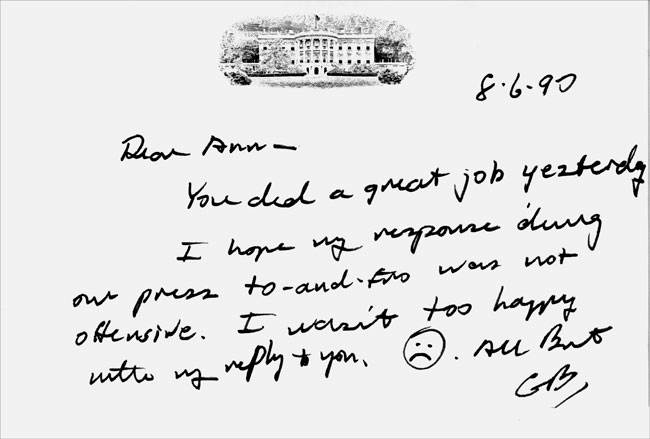 8-6-90
Dear Ann —
You did a great job yesterday
I hope my response during
our press to-and-fro was not
offensive. I wasn't too happy
with my reply to you. ☹. All Best
GB,